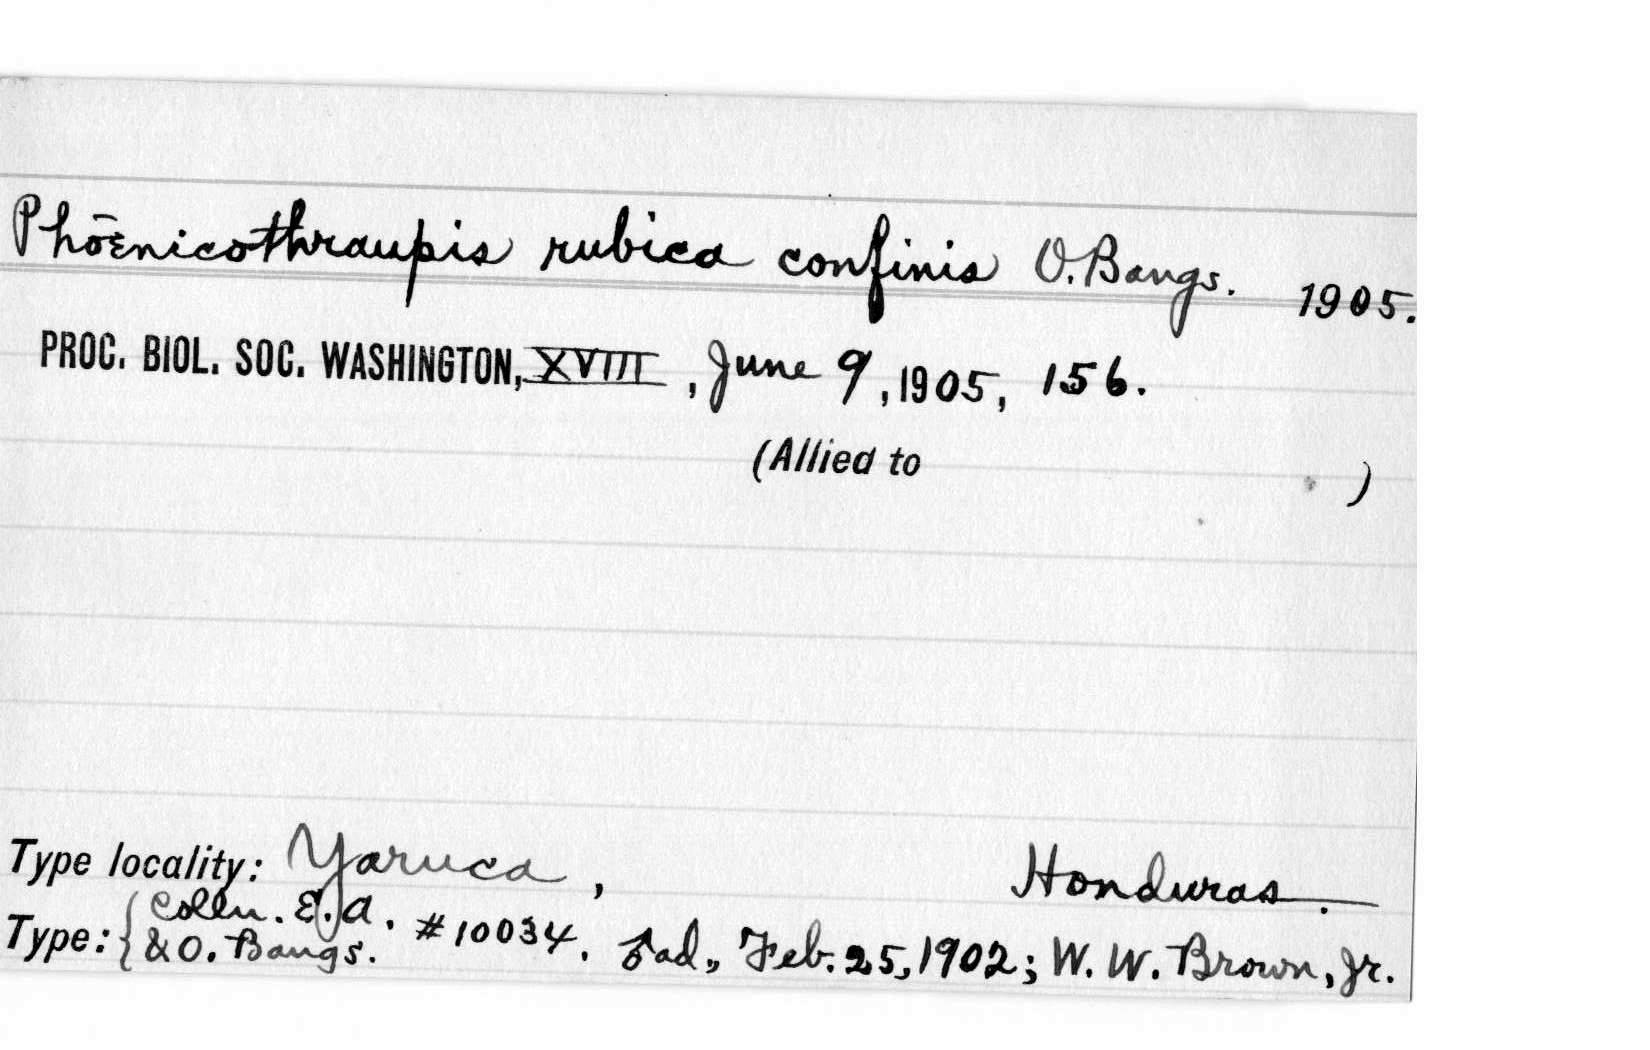 Phōenicothraupis rubica confinis O. Bangs. 1905.
PROC. BIOL. SOC. WASHINGTON, XVIII, June 9, 1905, 156.
(Allied to )
Type locality: Yaruca, Honduras.
Type: { Colln. E. A. & O. Bangs. #10034. ♂ad., Feb. 25, 1902; W. W. Brown, Jr.